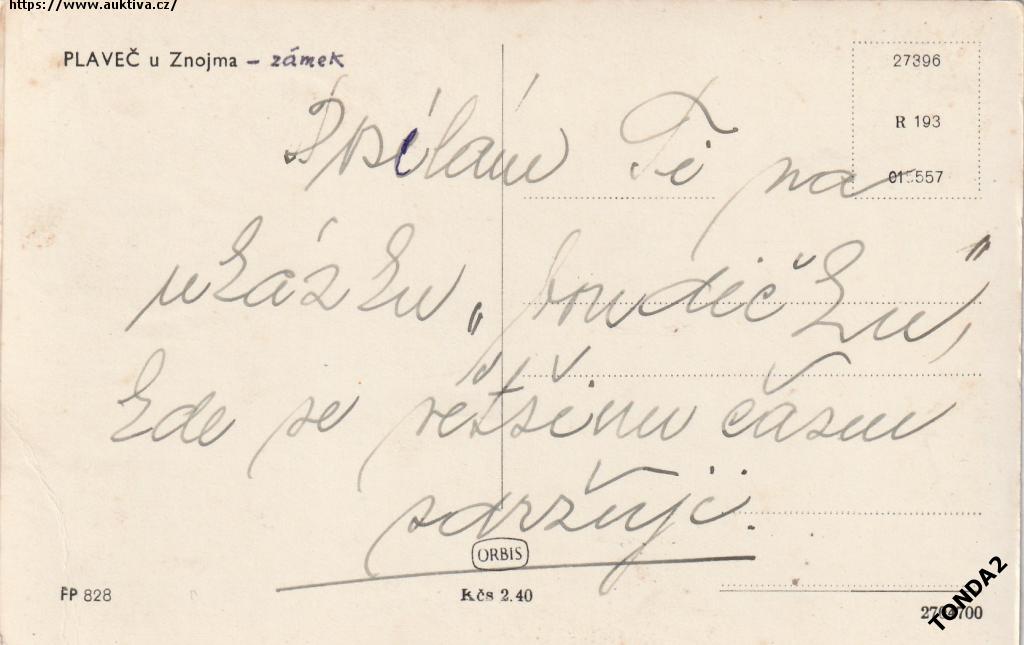 https://www.auktiva.cz/
PLAVEČ u Znojma – zámek
27396
R 193
015557
Posílám Ti na
ukázku „boudičku",
kde se většinu času
zdržuji.
ORBIS
FP 828
Kčs 2.40
TONDA2